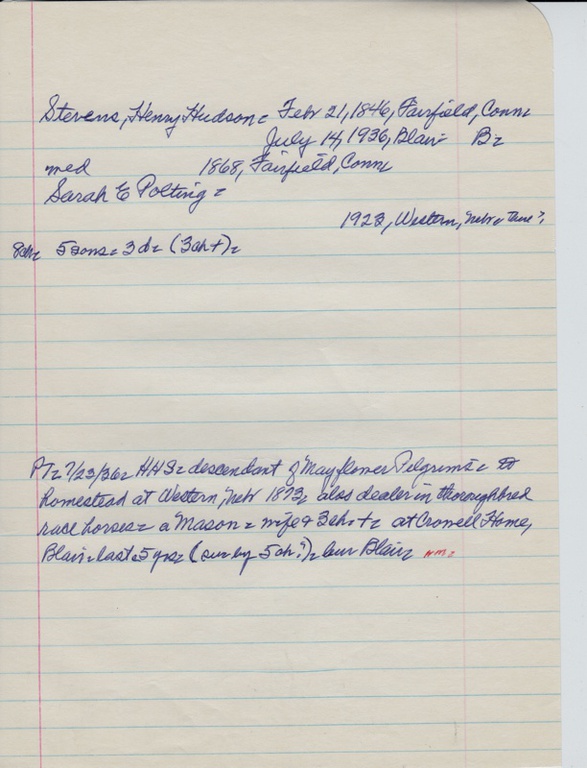 Stevens, Henry Hudson = Feb 21, 1846, Fairfield, Conn
July 14, 1936, Blair B =
med 1868, Fairfield, Conn
Sarah E Polting =
1923, Western, Nebr = there ?
8 ch = 5 sons = 3 d = (3 ch +) =
PT = 7/23/36 = HHS = descendant of Mayflower Pilgrims = to
homestead at Western, Nebr 1873, also dealer in thoroughbred
race horses = a Mason = wife & 3 ch + = at Crowell Home,
Blair = last 5 yrs = (sur by 5 ch ?) = bur Blair